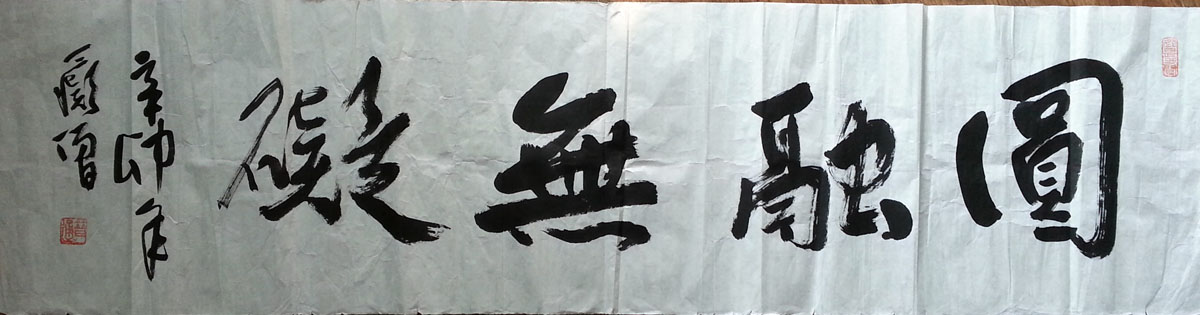 圓融無礙
辛卯年